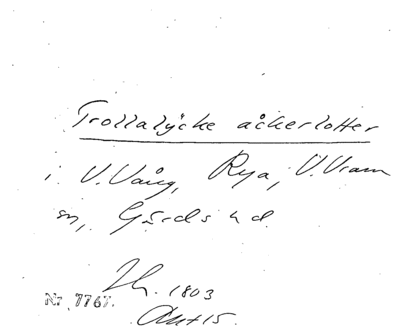 Trollalycke åkerlotter
i V.Vång, Rya, V.Vram
sn, Gärds hd.
Nr. 7767.
1803
Akt 15.